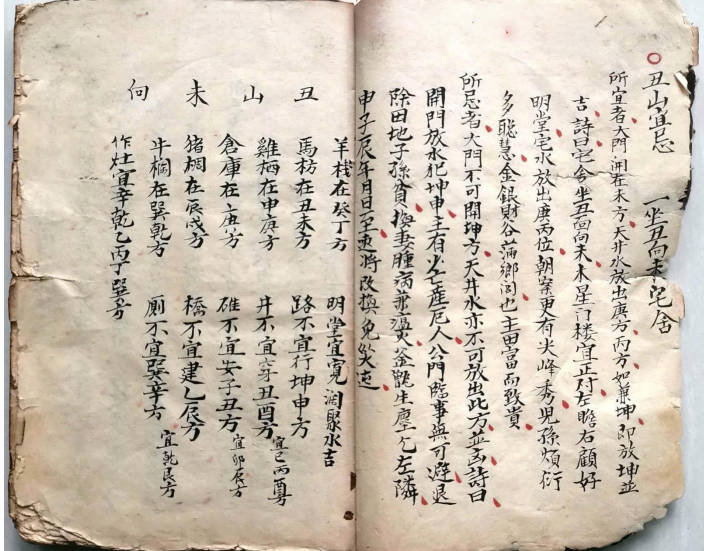 丑山宜忌 一坐丑向未宅舍
所宜者大門開在未方天井水放出庚方丙方如兼坤即放坤並
吉詩曰宅舍坐丑面向未未星门楼宜正对左瞻右顧好
明堂宅水放出庚丙位朝案更有尖峰秀児孫煩衍
多聡慧金銀財谷蒲鄉闾也主田富而致貴
所忌者大門不可開坤方天井水亦不可放出此方並凶詩曰
開門放水犯坤申主有少亡產厄人公門臨事無可避退
除田地子孫貧換妻腫病並瘟火釜甑生塵乞左隣
申子辰年月日至速將改換免災迍
丑山未向
羊栈在癸丁方 明堂宜寬濶聚水吉
馬枋在丑未方 路不宜行坤申方
雞栖在申庚方 井不宜子丑酉方 宜巳丙酉方
倉庫在庚方 碓不宜安子丑方 宜卯辰方
猪椆在辰戌方 橋不宜建乙辰方
牛欄在巽乾方 厠不宜巽辛方 宜乾艮方
作灶宜辛乾乙丙丁巽方